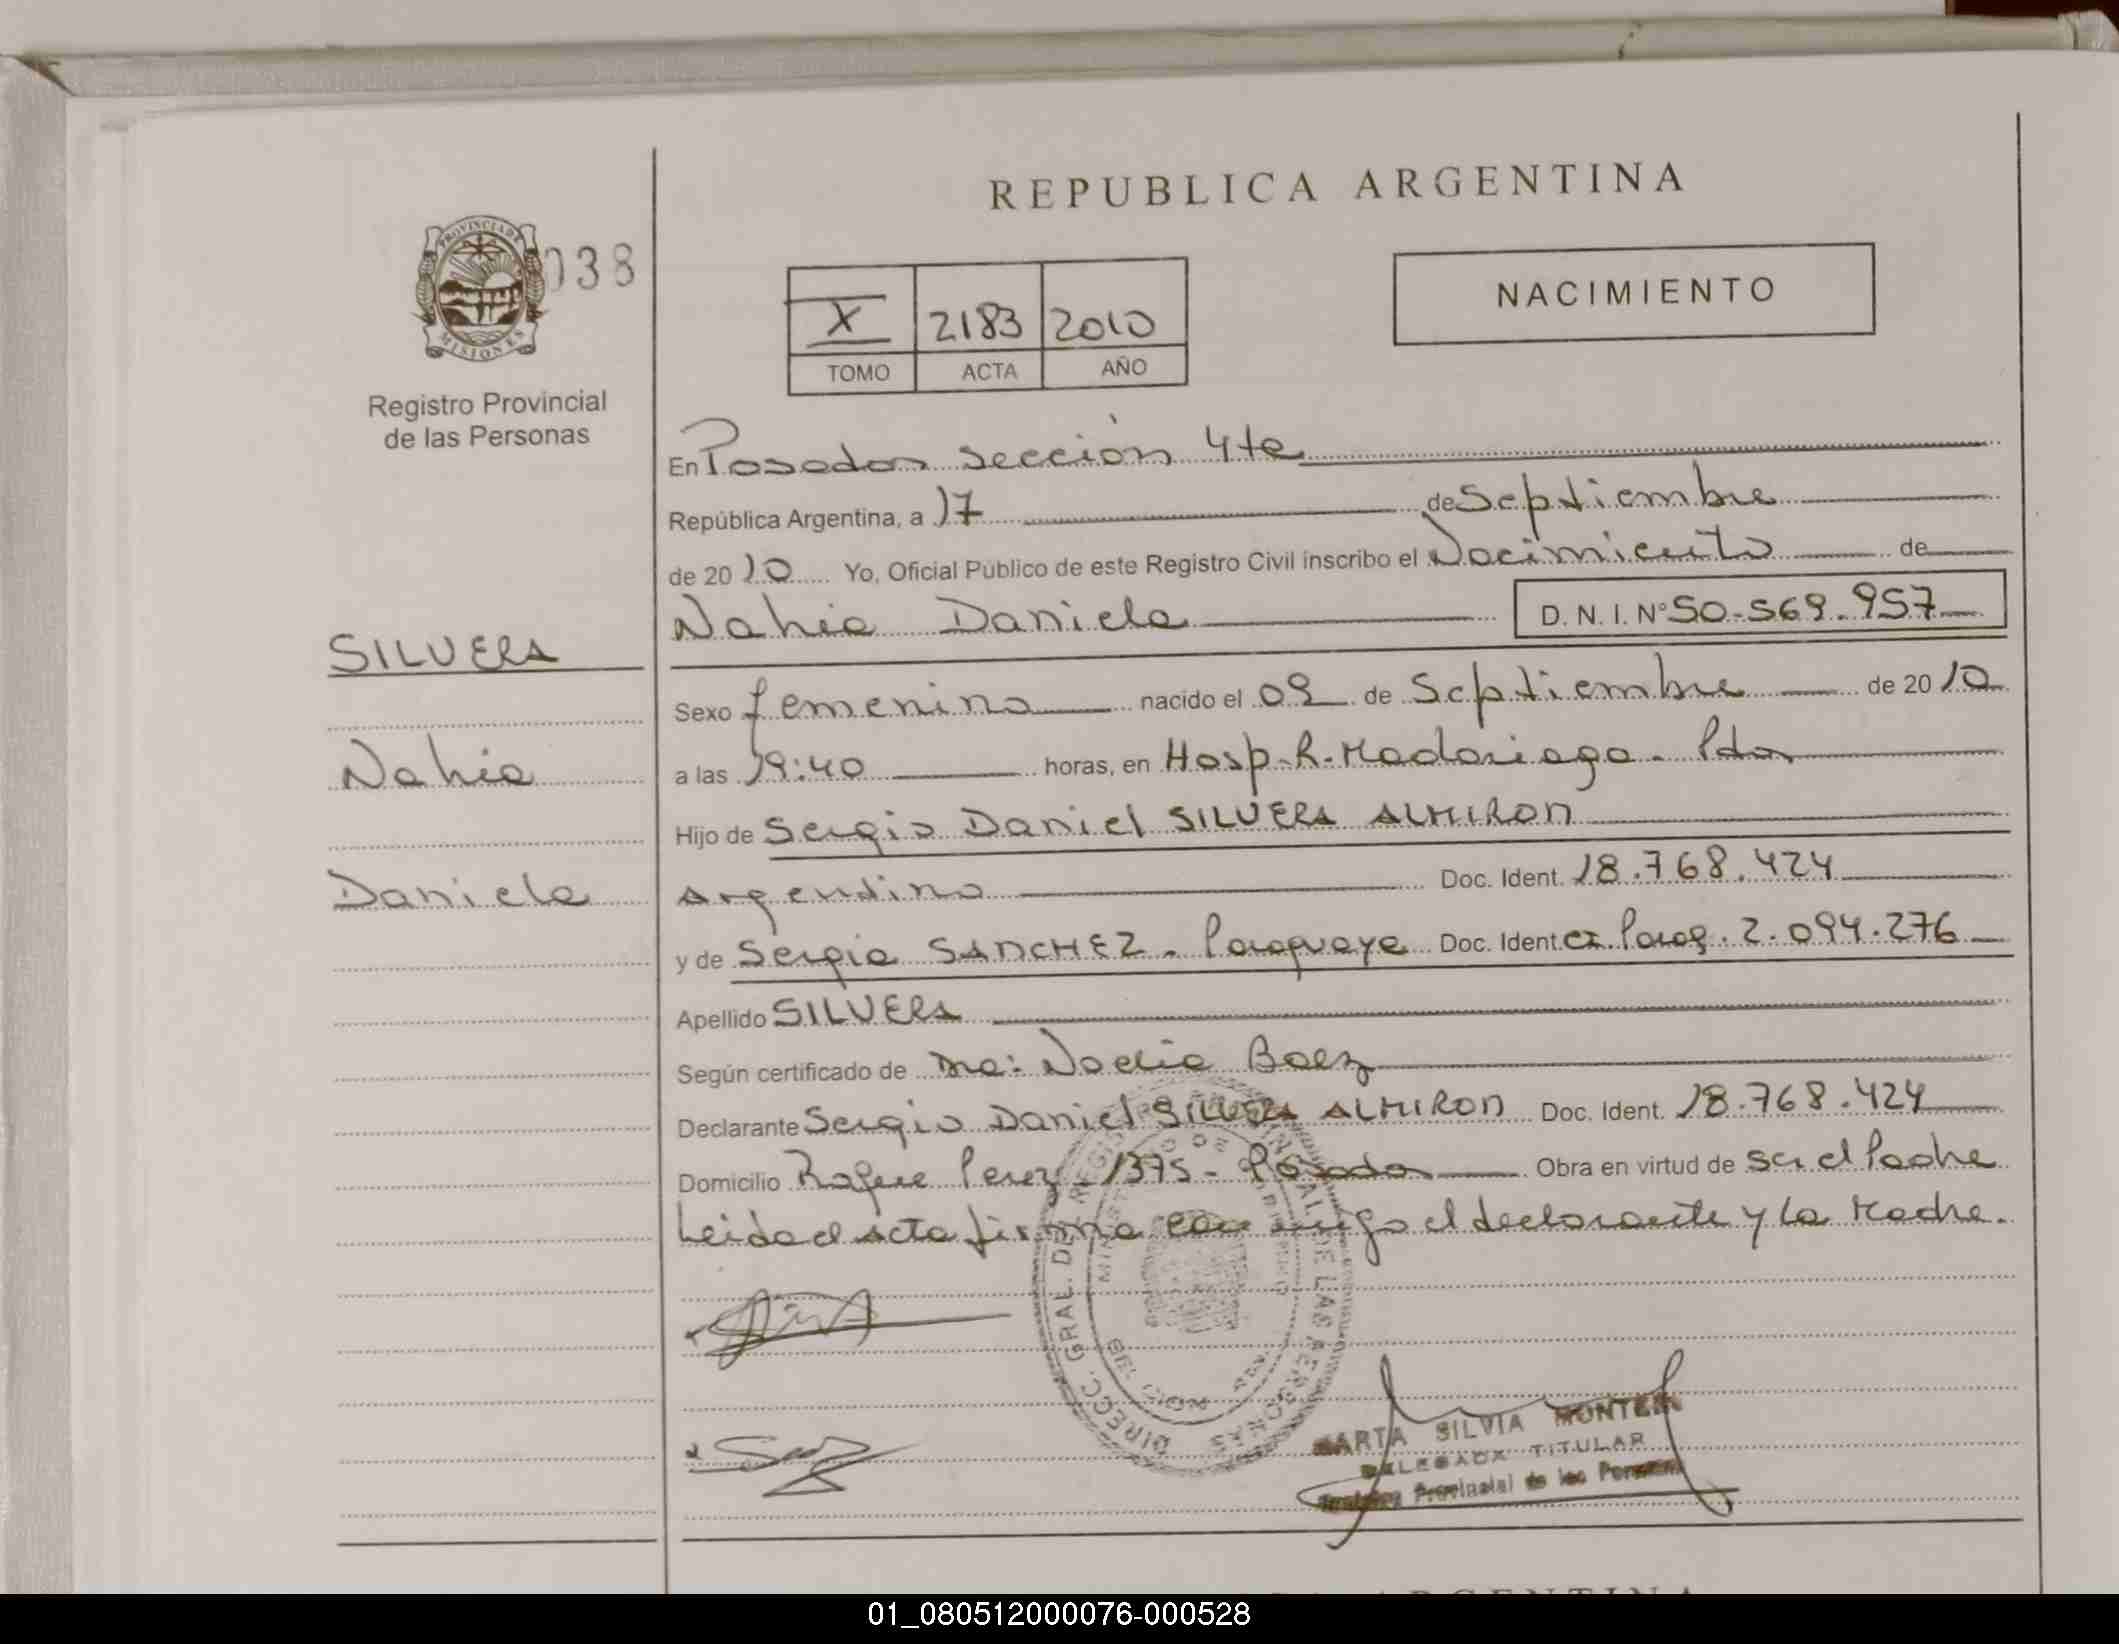 REPUBLICA ARGENTINA
PROVINCIA DE
MISIONES
038
Registro Provincial
de las Personas
X 2183 2010
TOMO ACTA AÑO
NACIMIENTO
En Posadas sección 4ta
República Argentina, a 17 de Septiembre
de 2010 Yo, Oficial Público de este Registro Civil inscribo el Nacimiento de
Nahia Daniela D. N. I. Nº 50.569.957
SILVERA
Sexo femenino nacido el 09 de Septiembre de 2010
Nahia
a las 19:40 horas, en Hosp. R. Madariaga. Pdas
Hijo de Sergio Daniel SILVERA ALMIRON
Daniela
Argentino Doc. Ident. 18.768.424
y de Sergia SANCHEZ. Paraguaya Doc. Ident. CI. Parag. 2.094.276
Apellido SILVERA
Según certificado de Dra: Noelia Baez
Declarante Sergio Daniel SILVERA ALMIRON Doc. Ident. 18.768.424
Domicilio Perez 1375 - Posadas Obra en virtud de ser el Padre
Leida el acta firma con migo el declarante y la Madre.
DIRECC. GRAL. DE LAS PERSONAS
MARTA SILVIA
DELEGADA TITULAR
Provincial de las Personas
01_080512000076-000528